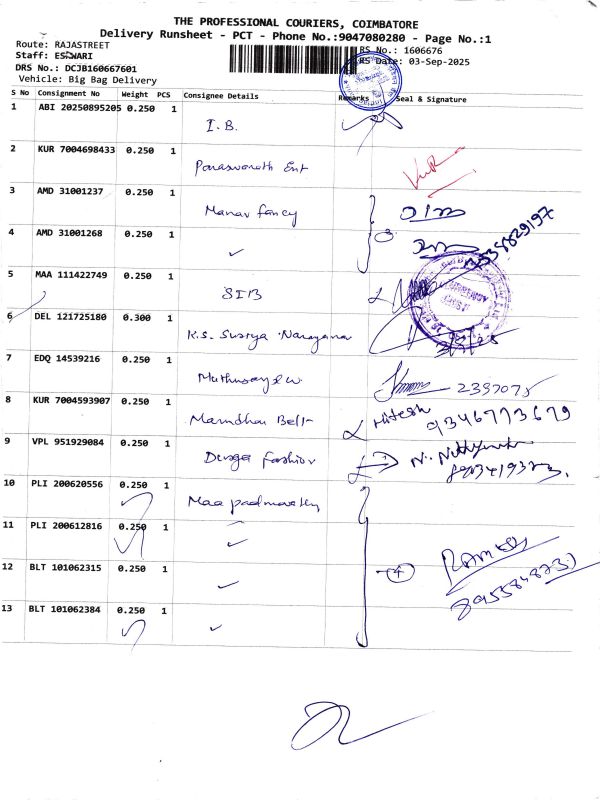 THE PROFESSIONAL COURIERS, COIMBATORE
Delivery Runsheet - PCT - Phone No.:9047080280 - Page No.:1
Route: RAJASTREET
RS No.: 1606676
Staff: ESWARI
RS Date: 03-Sep-2025
DRS No.: DCJB160667601
Vehicle: Big Bag Delivery
S No Consignment No Weight PCS Consignee Details Remarks Seal & Signature
1 ABI 20250895205 0.250 1
I.B.
2 KUR 7004698433 0.250 1
Paraswanath Ent
3 AMD 31001237 0.250 1
Manav fancy
4 AMD 31001268 0.250 1
✓ 3
5 MAA 111422749 0.250 1
SIB
6 DEL 121725180 0.300 1
K.S. Surya Narayana
7 EDQ 14539216 0.250 1
2397075
8 KUR 7004593907 0.250 1
Mamdhan Belt Hitesh 9346773679
9 VPL 951929084 0.250 1
Durga fashion
10 PLI 200620556 0.250 1
Maa padmavathy
11 PLI 200612816 0.250 1
✓
12 BLT 101062315 0.250 1
✓ 4
13 BLT 101062384 0.250 1
✓